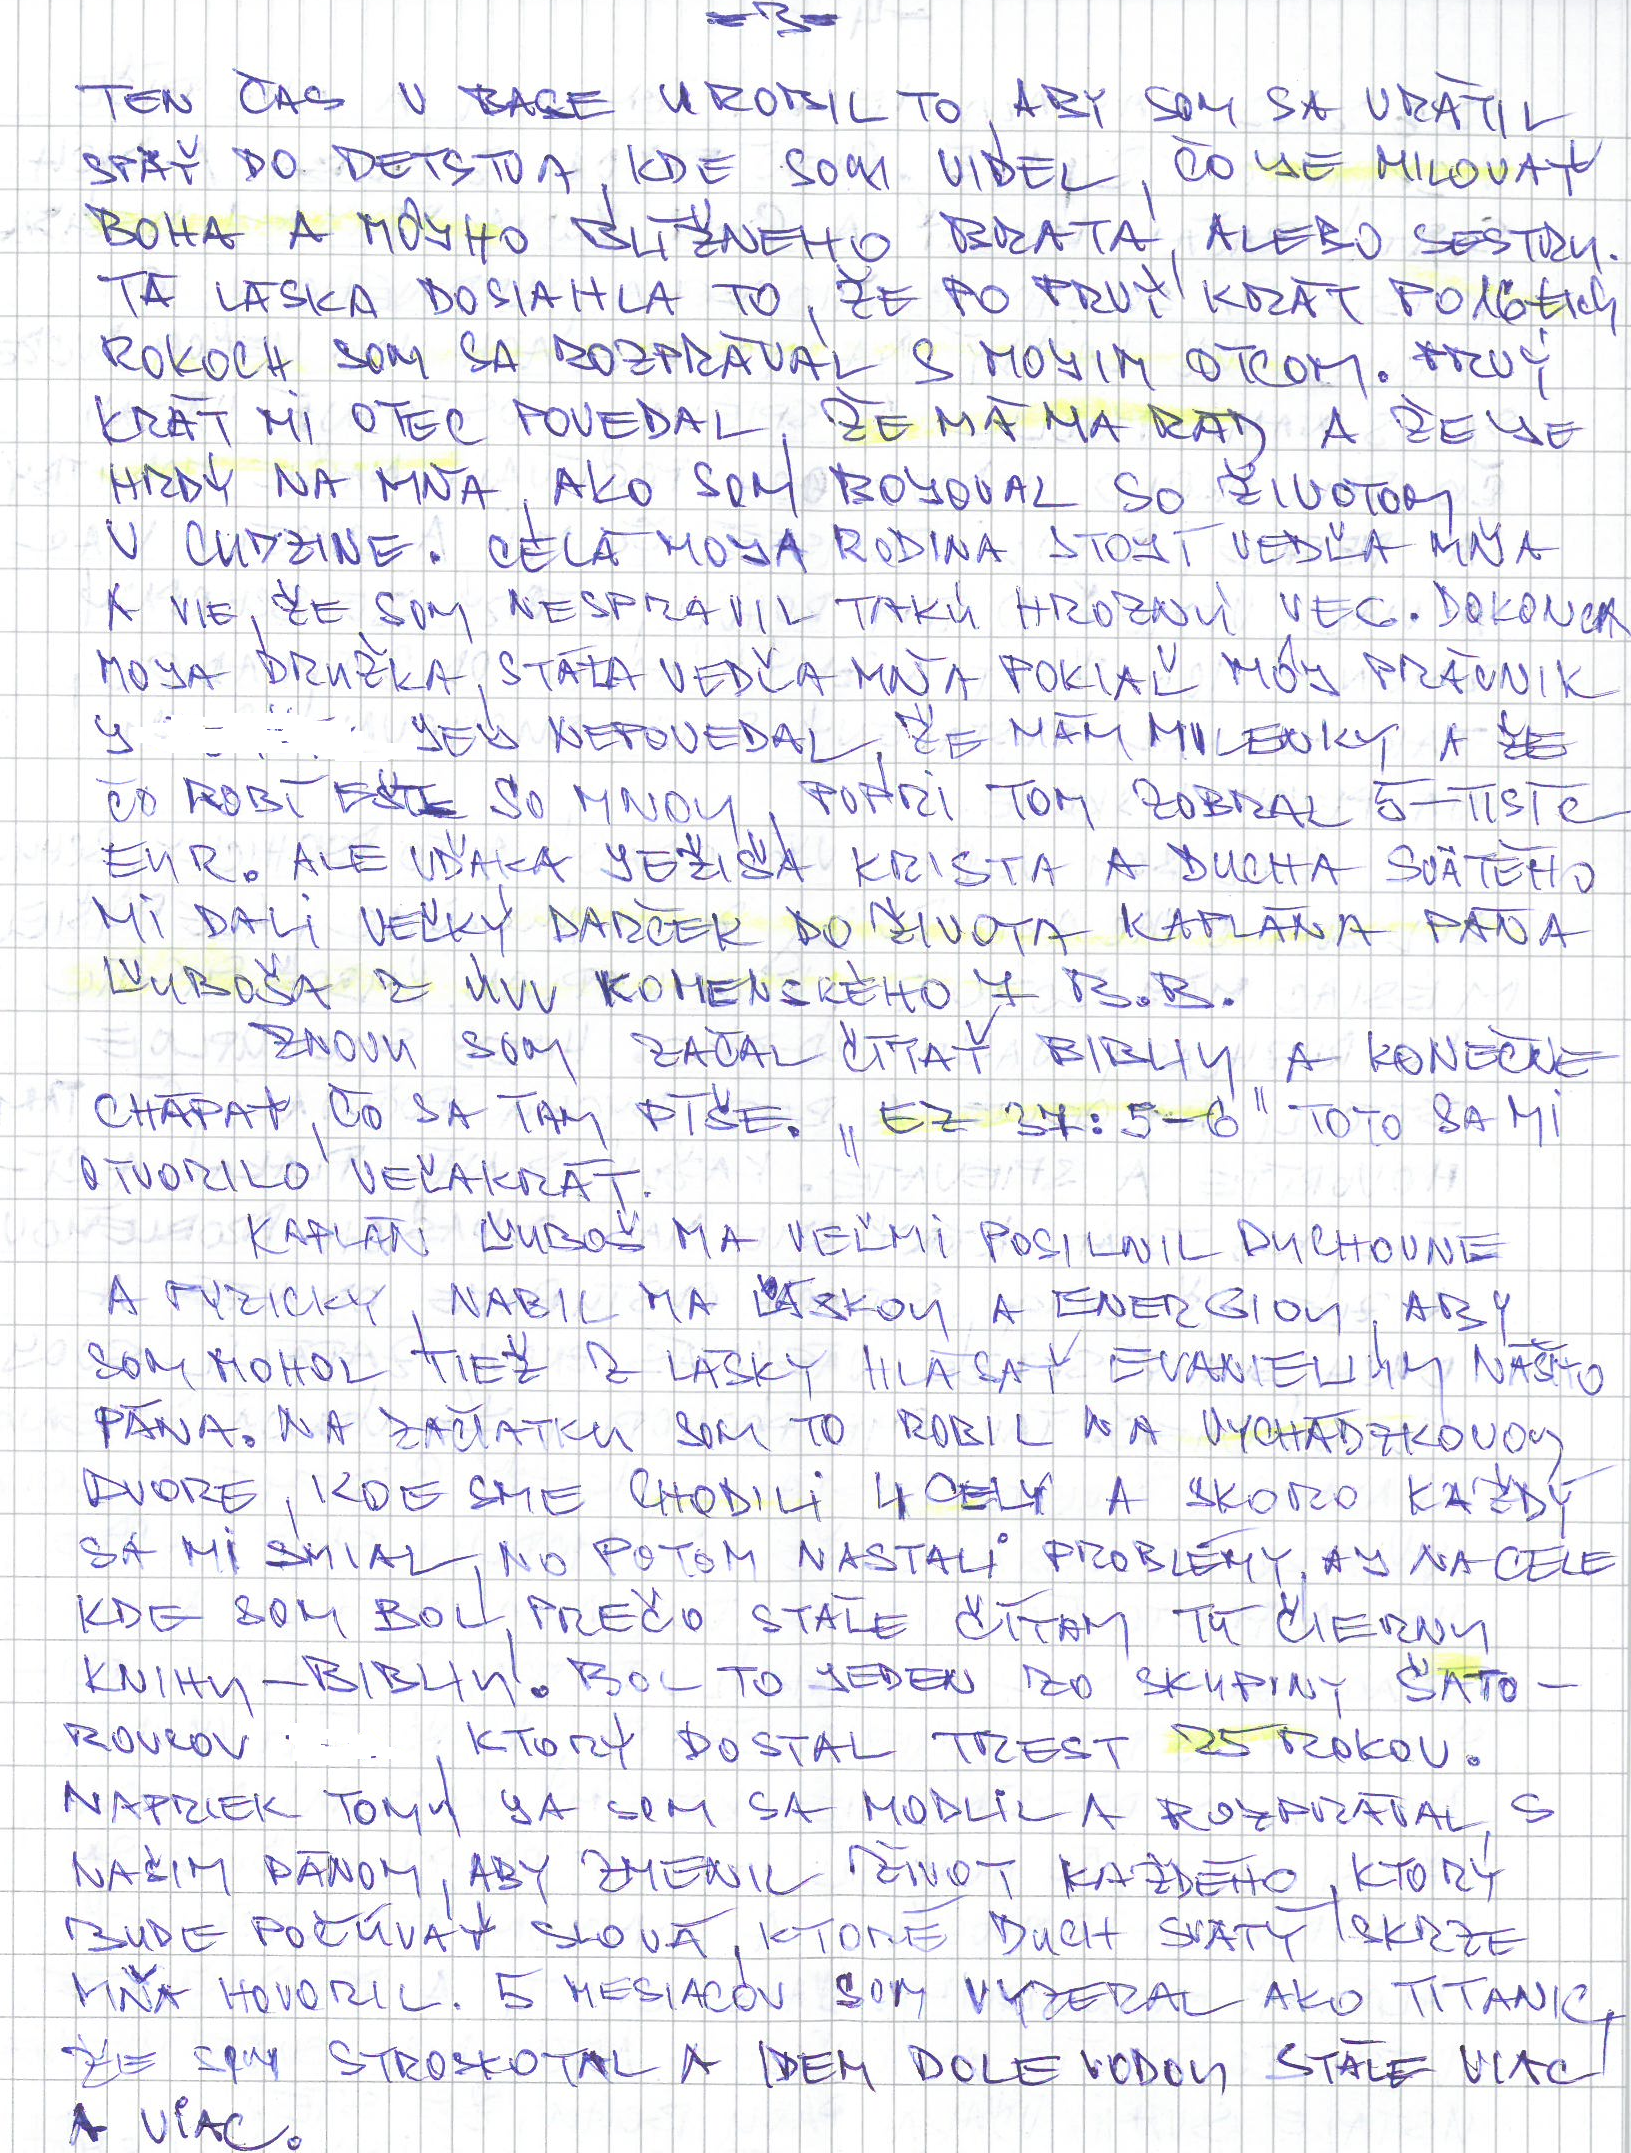 =3=
TEN ČAS V BASE UROBIL TO, ABY SOM SA VRÁTIL
SPÄŤ DO DETSTVA, KDE SOM VIDEL, ČO JE MILOVAŤ
BOHA A MÔJHO BLÍŽNEHO BRATA, ALEBO SESTRU.
TÁ LÁSKA DOSIAHLA TO, ŽE PO PRVÝ KRÁT PO 16-TICH
ROKOCH SOM SA ROZPRÁVAL S MOJIM OTCOM. PRVÝ
KRÁT MI OTEC POVEDAL, ŽE MÁ MA RÁD A ŽE JE
HRDÝ NA MŇA, AKO SOM BOJOVAL SO ŽIVOTOM
V CUDZINE. CELÁ MOJA RODINA STOJÍ VEDĽA MŇA
A VIE, ŽE SOM NESPRAVIL TAKÚ HROZNÚ VEC. DOKONCA
MOJA DRUŽKA, STÁLA VEDĽA MŇA POKIAĽ MÔJ PRÁVNIK
J JEJ NEPOVEDAL, ŽE MÁM MILENKY A ŽE
ČO ROBÍ EŠTE SO MNOU, POPRI TOM ZOBRAL 5-TISÍC
EUR. ALE VĎAKA JEŽIŠA KRISTA A DUCHA SVÄTÉHO
MI DALI VEĽKÝ DARČEK DO ŽIVOTA KAPLÁNA PÁNA
ĽUBOŠA Z ÚVV KOMENSKÉHO 7 B.B.
ZNOVU SOM ZAČAL ČÍTAŤ BIBLIU A KONEČNE
CHÁPAŤ, ČO SA TAM PÍŠE. „EZ 37:5-6" TOTO SA MI
OTVORILO VEĽAKRÁT.
KAPLÁN ĽUBOŠ MA VEĽMI POSILNIL DUCHOVNE
A FYZICKY, NABIL MA LÁSKOU A ENERGIOU, ABY
SOM MOHOL TIEŽ Z LÁSKY HLÁSAŤ EVANIELIUM NÁŠHO
PÁNA. NA ZAČIATKU SOM TO ROBIL NA VYCHÁDZKOVOM
DVORE, KDE SME CHODILI 4 CELY A SKORO KAŽDÝ
SA MI SMIAL, NO POTOM NASTALI PROBLÉMY, AJ NA CELE
KDE SOM BOL, PREČO STÁLE ČÍTAM TÚ ČIERNU
KNIHU - BIBLIU. BOL TO JEDEN ZO SKUPINY ŠÁTO-
ROVCOV , KTORÝ DOSTAL TREST 25 ROKOV.
NAPRIEK TOMU JA SOM SA MODLIL A ROZPRÁVAL S
NAŠIM PÁNOM, ABY ZMENIL ŽIVOT KAŽDÉHO, KTORÝ
BUDE POČÚVAŤ SLOVÁ, KTORÉ DUCH SVÄTÝ SKRZE
MŇA HOVORIL. 5 MESIACOV SOM VYZERAL AKO TITANIC,
ŽE SOM STROSKOTAL A IDEM DOLE VODOU STÁLE VIAC
A VIAC.